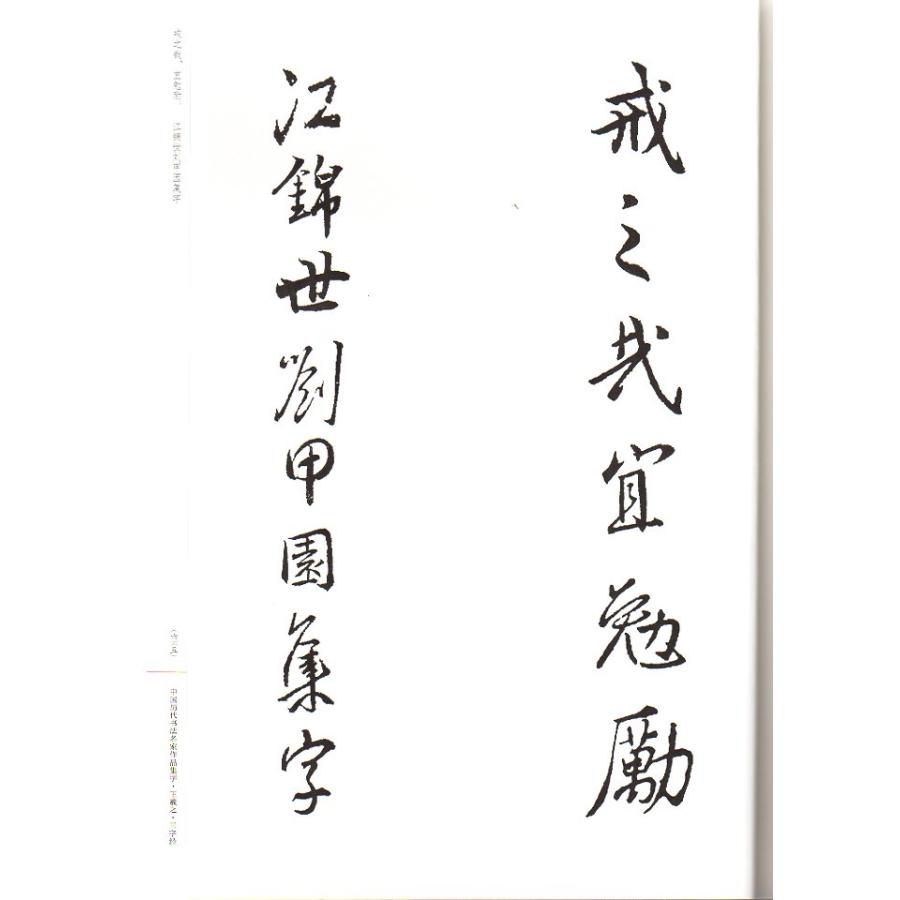 戒之哉宜勉勵
江錦世劉甲園集字
戒之哉,宜勉励。 江锦世刘甲园集字
中国历代书法名家作品集字·王羲之·三字经